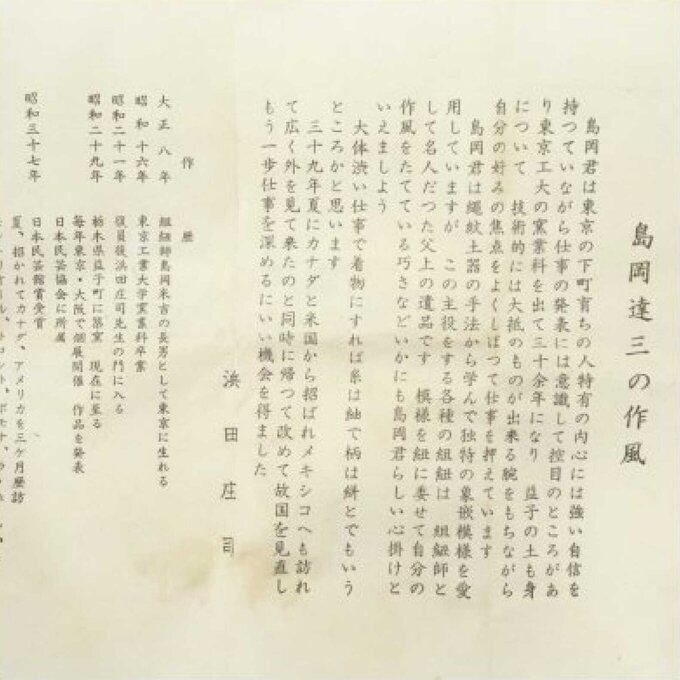 島岡達三の作風
島岡君は東京の下町育ちの人特有の内心には強い自信を
持つていながら仕事の発表には意識して控目のところがあ
り東京工大の窯業科を出て三十余年になり　益子の土も身
について　技術的には大抵のものが出来る腕をもちながら
自分の好みの焦点をよくしぼつて仕事を押えています
島岡君は縄紋土器の手法から学んで独特の象嵌模様を愛
用していますが　この主役をする各種の組紐は　組紐師と
して名人だつた父上の遺品です　模様を紐に委せて自分の
作風をたてている巧さなどいかにも島岡君らしい心掛けと
いえましよう
大体渋い仕事で着物にすれば糸は紬で柄は絣とでもいう
ところかと思います
三十九年夏にカナダと米国から招ばれメキシコへも訪れ
て広く外を見て来たのと同時に帰つて改めて故国を見直し
もう一歩仕事を深めるにいい機会を得ました
浜田庄司
作　歴
大正八年　組紐師島岡米吉の長男として東京に生れる
昭和十六年　東京工業大学窯業科卒業
昭和二十一年　復員後浜田庄司先生の門に入る
昭和二十九年　栃木県益子町に築窯　現在に至る
毎年東京・大阪で個展開催　作品を発表
日本民芸協会に所属
昭和三十七年　日本民芸館賞受賞
夏、招かれてカナダ、アメリカを三ケ月歴訪